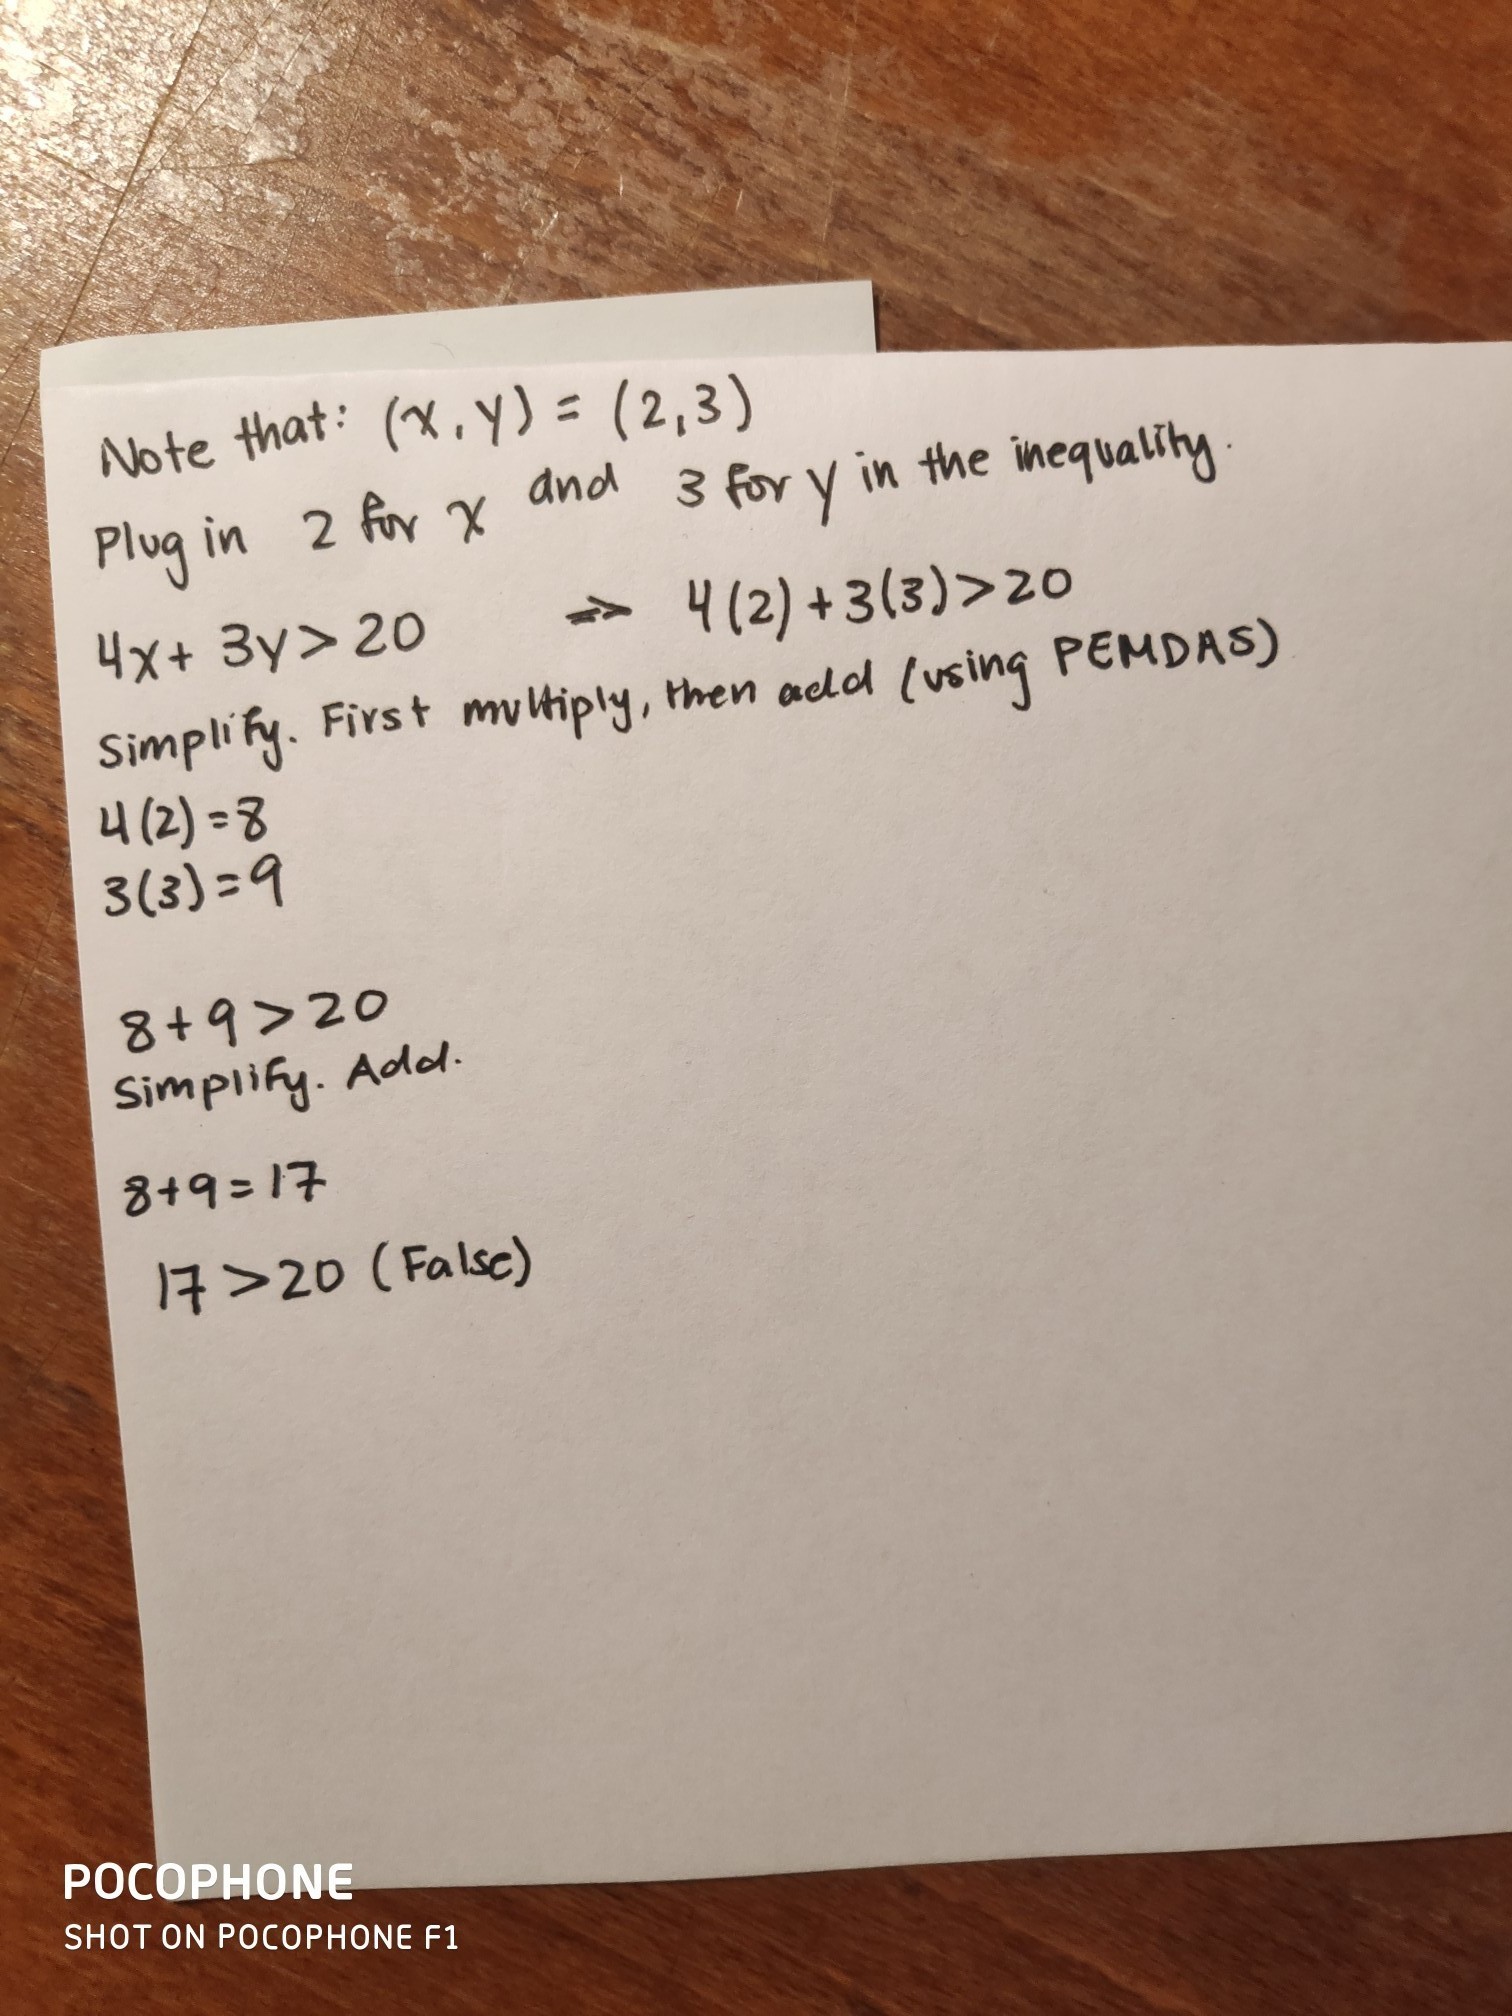 Note that: (x, y) = (2,3)
Plug in 2 for x and 3 for y in the inequality.
4x+ 3y> 20 => 4(2)+3(3)>20
Simplify. First multiply, then add (using PEMDAS)
4(2)=8
3(3)=9
8+9>20
Simplify. Add.
8+9=17
17>20 (False)
POCOPHONE
SHOT ON POCOPHONE F1